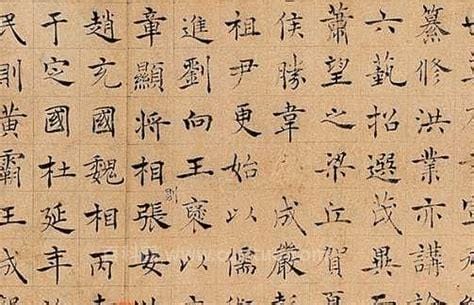 纂修洪業亦講
六藝招選茂異
蕭望之梁丘賀夏
侯勝韋成嚴
祖尹更始以儒術
進劉向王襃以
章顯將相張安
則
趙充國魏相丙
于定國杜延年
民則黃霸王成